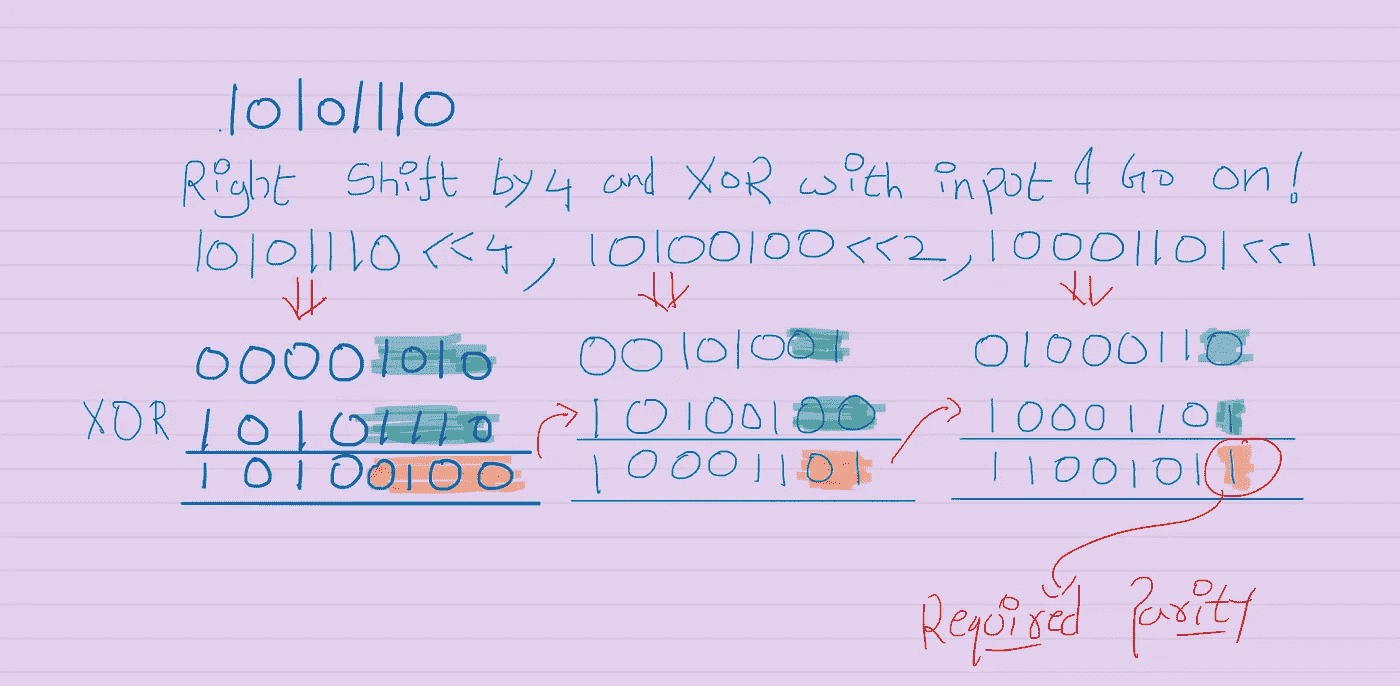 10101110
Right Shift by 4 and XOR with input & Go on!
10101110 <<4, 10100100 <<2, 10001101 <<1
00001010 00101001 01000110
XOR 10101110 10100100 10001101
10100100 10001101 11001011
Required Parity